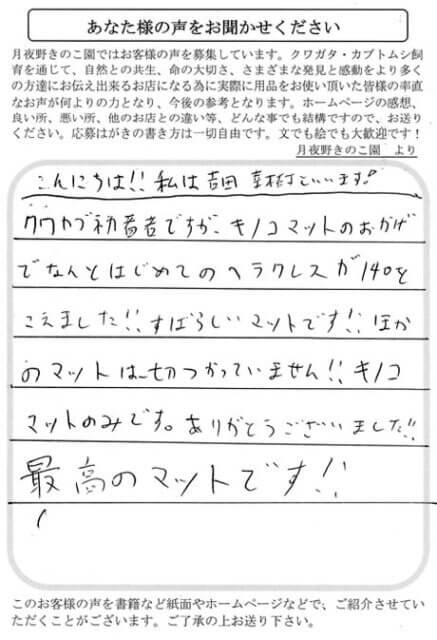 あなた様の声をお聞かせください
月夜野きのこ園ではお客様の声を募集しています。クワガタ・カブトムシ飼
育を通じて、自然との共生、命の大切さ、さまざまな発見と感動をより多く
の方達にお伝え出来るお店になる為に実際に用品をお使い頂いた皆様の率直
なお声が何よりの力となり、今後の参考となります。ホームページの感想、
良い所、悪い所、他のお店との違い等、どんな事でも結構ですので、お送り
ください。応募はがきの書き方は一切自由です。文でも絵でも大歓迎です！
月夜野きのこ園 より
こんにちは!! 私は吉田 といいます!
クワカブ初着者ですが、キノコマットのおかげ
でなんとはじめてのヘラクレスが140を
こえました!! すばらしいマットです!! ほか
のマットは一切つかっていません!! キノコ
マットのみです。ありがとうございました!!
最高のマットです!!
このお客様の声を書籍など紙面やホームページなどで、ご紹介させてい
ただくことがございます。ご了承の上お送り下さい。